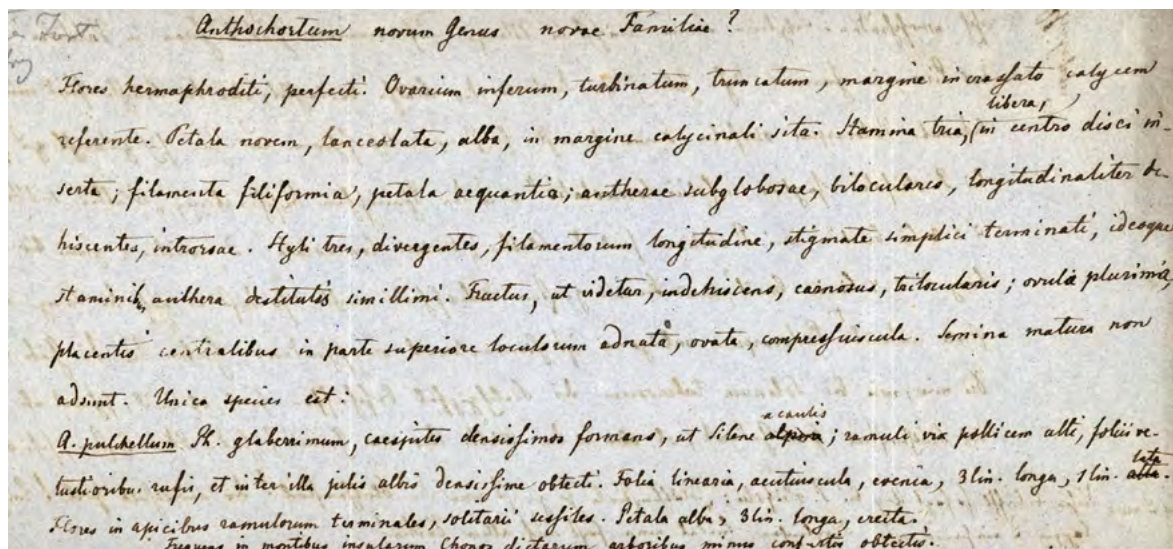 Anthochortum novum Genus novae Familiae?
Flores hermaphroditi, perfecti. Ovarium inferum, turbinatum, truncatum, margine incrassato calycem
referente. Petala novem, lanceolata, alba, in margine calycinali sita. Stamina tria, libera, in centro disci in-
serta; filamenta filiformia, petala aequantia; antherae subglobosae, biloculares, longitudinaliter de-
hiscentes, introrsae. Styli tres, divergentes, filamentorum longitudine, stigmate simplici terminati, ideoque
staminib. anthera destitutis simillimi. Fructus, ut videtur, indehiscens, carnosus, trilocularis; ovula plurima,
placentis centralibus in parte superiore loculorum adnata, ovata, compressiuscula. Semina matura non
adsunt. Unica species est:
A. pulchellum Ph. glaberrimum, caespites densissimos formans, ut Silene alpina acaulis; ramuli vix pollicem alti, foliis ve-
tustioribus rufis, et inter illa pilis albis densissime obtecti. Folia linearia, acutiuscula, evenia, 3 lin. longa, 1 lin. alta lata.
Flores in apicibus ramulorum terminales, solitarii sessiles. Petala alba, 3 lin. longa, erecta.
Frequens in montibus insularum Chonos dictarum arboribus minus confertis obtectis.